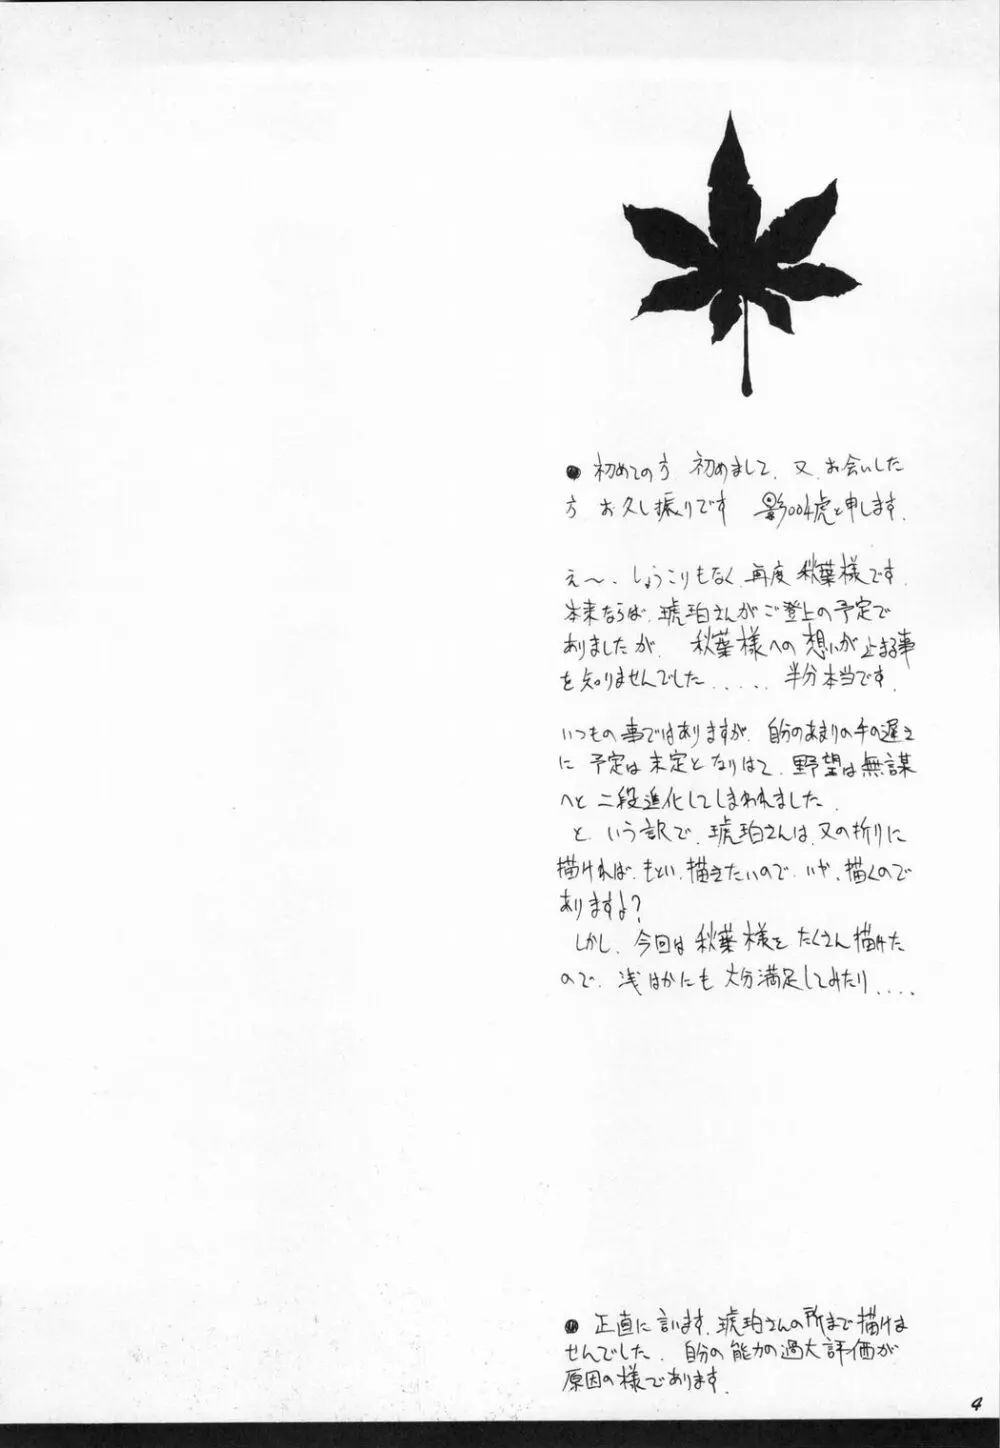 ●初めての方 初めまして、又、お会いした
方 お久し振りです 影004虎と申します。
え〜、しょうこりもなく、再度 秋葉様です。
本来ならば、琥珀さんがご登上の予定で
ありましたが、 秋葉様への想いが止まる事
を知りませんでした..... 半分本当です。
いつもの事ではありますが、自分のあまりの手の遅さ
に 予定は未定となりはて、野望は無謀
へと 二段進化してしまわれました。
と、いう訳で、琥珀さんは、又の折りに
描ければ、もとい、描きたいので、いや、描くので
ありますよ?
しかし、今回は 秋葉様を たくさん描けた
ので、浅はかにも 大分満足してみたり....
●正直に言います。琥珀さんの所まで描けま
せんでした。 自分の能力の過大評価が
原因の様であります。
4